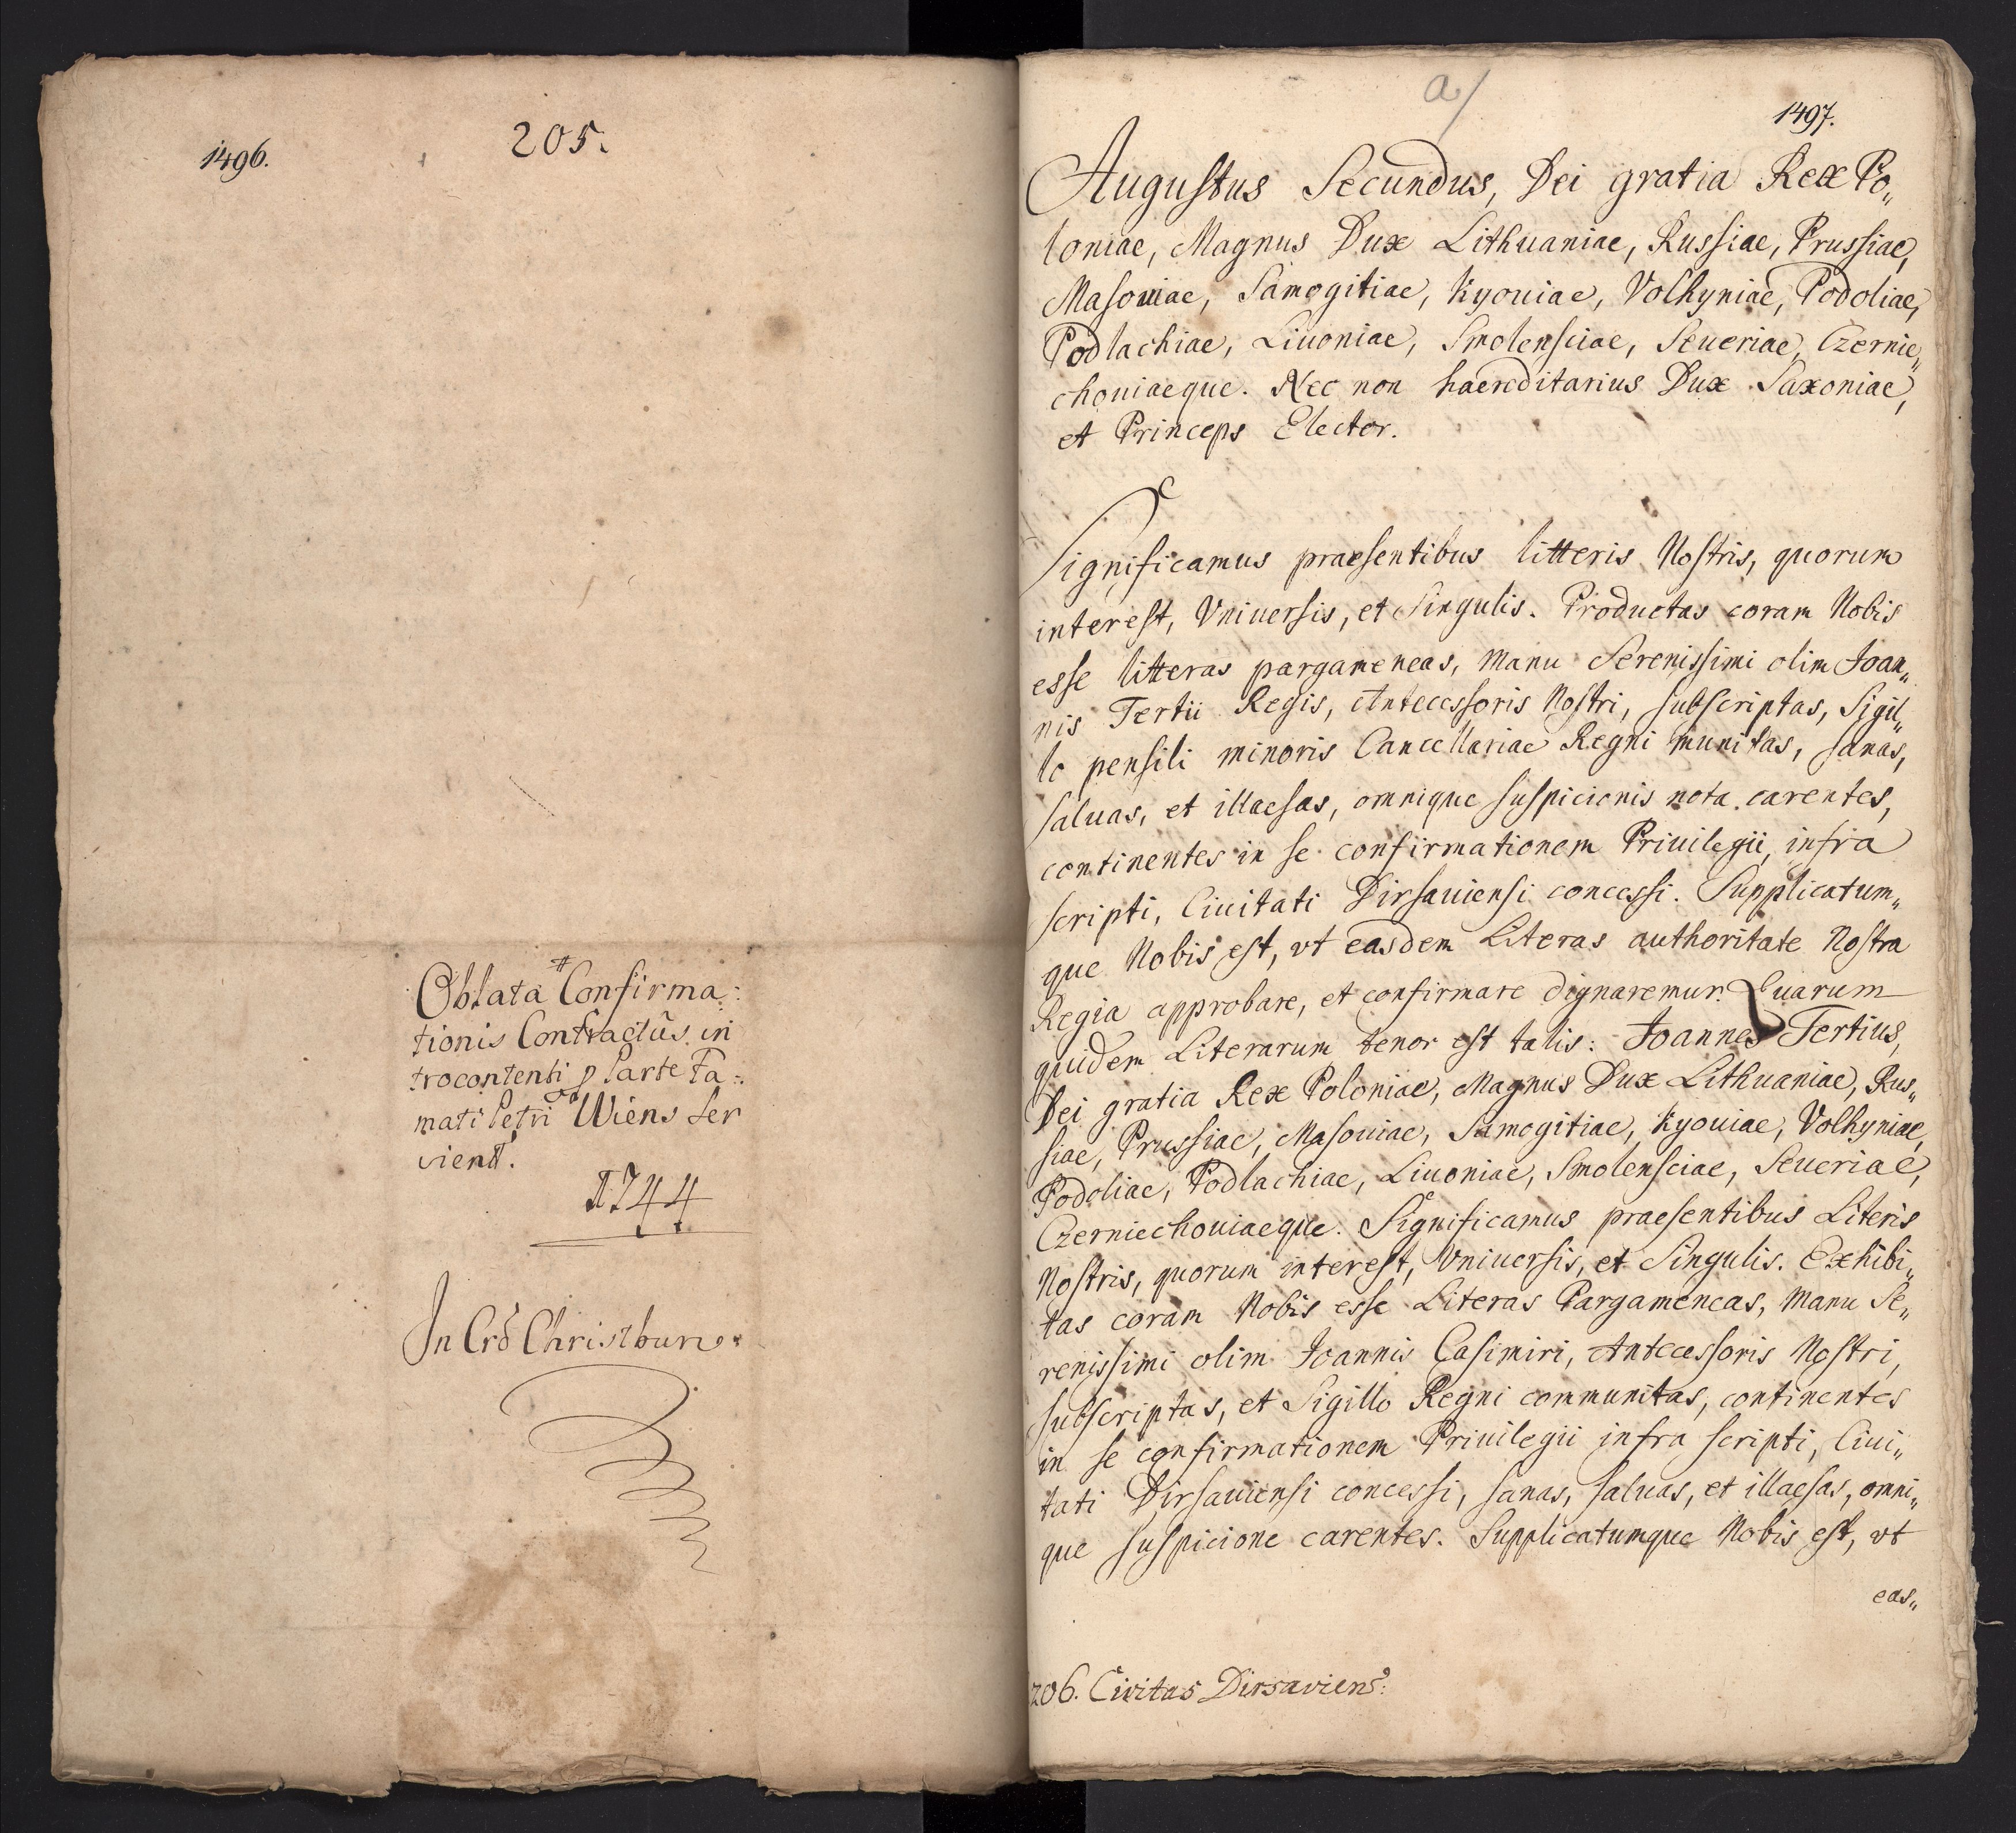 1496.
205.
Oblata Confirma:
tionis Contractus in
trocontenti p Parte Fa:
mati Petri Wiens ser
vient.
1744
In Crõ Christbur:
a/
1497.
Augustus Secundus, Dei gratia Rex Po„
loniae, Magnus Dux Lithuaniae, Russiae, Prussiae,
Masouiae, Samogitiae, Kyouiae, Volhyniae, Podoliae,
Podlachiae, Liuoniae, Smolensciae, Seueriae, Czernie„
chouiaeque. Nec non haereditarius Dux Saxoniae,
et Princeps Elector.
Significamus praesentibus litteris Nostris, quorum
interest, Vniuersis, et Singulis. Productas coram Nobis
esse litteras pargameneas, manu Serenissimi olim Joan„
nis Tertii Regis, Antecessoris Nostri, subscriptas, Sigil„
lo pensili minoris Cancellariae Regni munitas, sanas,
saluas, et illaesas, omnique suspicionis nota carentes,
continentes in se confirmationem Priuilegii infra
scripti, Ciuitati Dirsauiensi concessi. Supplicatum„
que Nobis est, vt easdem Literas authoritate Nostra
Regia approbare, et confirmare dignaremur. Quarum
quidem Literarum tenor est talis: Joannes Tertius,
Dei gratia Rex Poloniae, Magnus Dux Lithuaniae, Rus„
siae, Prussiae, Masouiae, Samogitiae, Kyouiae, Volhyniae,
Podoliae, Podlachiae, Liuoniae, Smolensciae, Seueriae,
Czerniechouiaeque. Significamus praesentibus Literis
Nostris, quorum interest, Vniuersis, et Singulis. Exhibi„
tas coram Nobis esse Literas Pargameneas, manu Se„
renissimi olim Joannis Casimiri, Antecessoris Nostri,
subscriptas, et Sigillo Regni communitas, continentes
in se confirmationem Priuilegii infra scripti, Ciui„
tati Dirsauiensi concessi, sanas, saluas, et illaesas, omni„
que suspicione carentes. Supplicatumque Nobis est, vt
eas„
206. Civitas Dirsaviens: